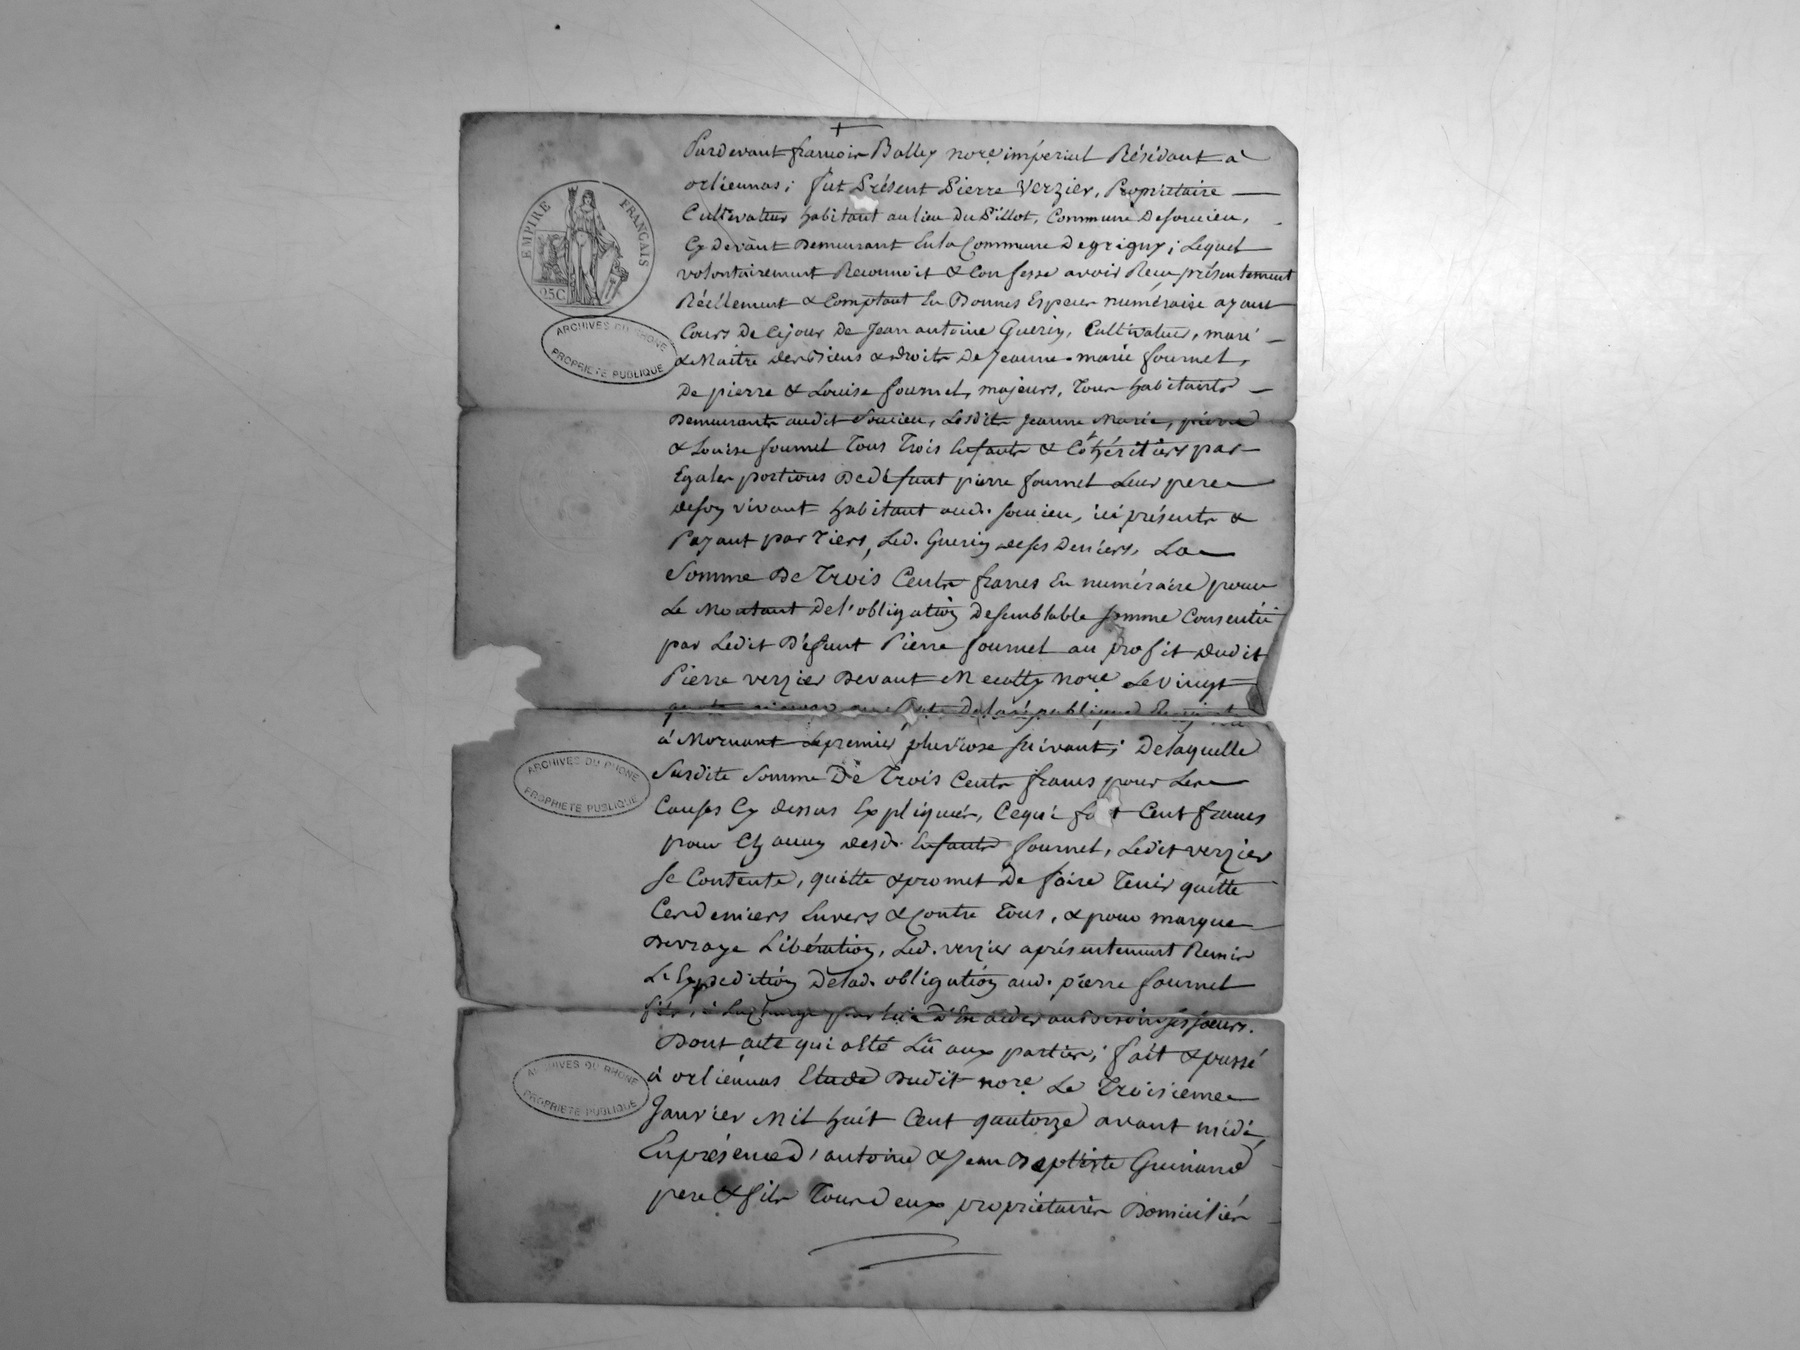 EMPIRE FRANÇAIS
25C
ARCHIVES DU RHONE
PROPRIETE PUBLIQUE
Pardevant françois Balley nore. impérial Résidant a
orliennas; fut Présent Pierre Verzier, Propriétaire
Cultivateur habitant au lieu Du Pillot, Commune De soucieu,
Cy Devant Demeurant En la Commune De grigny; Lequel
volontairement Reconnoit & Confesse avoir Reçu présentement
Réellement & Comptant En Bonnes Especes numéraire ayant
Cours De ce jour De Jean antoine Guerin, Cultivateur, mari
& Maitre des Biens & droits De jeanne marie fournel,
De pierre & Louise fournel, majeurs, Tous habitants
Demeurants audit Soucieu, Lesdits jeanne Marie, pierre
& Louise fournel Tous Trois Enfants & Cohéritiers par
Egales portions De défunt pierre fournel Leur pere
de son vivant habitant aud. soucieu, ici présents &
Payant par Tiers, Led. Guerin de ses Deniers, La
Somme De Trois Cents francs En numéraire pour
Le Montant De l'obligation De semblable somme Consentie
par Ledit Défunt Pierre fournel au profit dudit
Pierre verzier Devant Me cotty nore. Le vingt
De la république
à Mornant Le premier pluviose suivant; De laquelle
Susdite Somme De Trois Cents francs pour Les
Causes Cy dessus Expliquées, Ce qui fait Cent francs
pour Chacun desd. Enfants fournel, Ledit verzier
se Contente, quitte & promet De faire Tenir quitte
Ces Derniers Envers & Contre Tous, & pour marque
De vraye Libération, Led. verzier a présentement Remis
L'Expedition De lad. obligation aud. pierre fournel
fils, à La Charge par lui d'En aider au Besoin ses sœurs.
Dont acte qui a Eté Lû aux parties; fait & passé
à orliennas Etude Dudit nore. Le Troisieme
Janvier Mil huit Cent quatorze avant midi,
En présence d'antoine & Jean Baptiste Guinand
pere & fils Tous Deux propriétaires Domiciliés
ARCHIVES DU RHONE
PROPRIETE PUBLIQUE
ARCHIVES DU RHONE
PROPRIETE PUBLIQUE